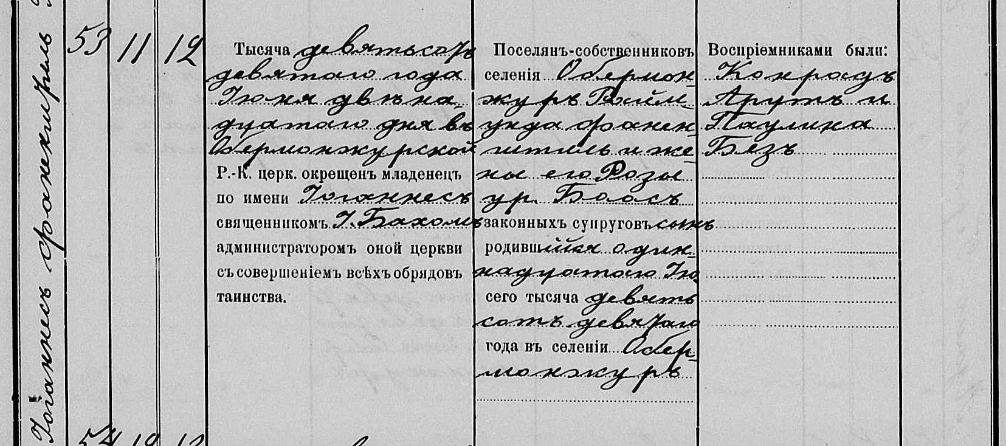 Іоганнесъ Франкештель
53
11
12
Тысяча девятьсотъ
девятаго года
Іюня двѣна-
дцатаго дня въ
Обермонжурской
Р.-К. церк. окрещенъ младенецъ
по имени Іоганнесъ
священникомъ І. Бахомъ
администраторомъ оной церкви
съ совершеніемъ всѣхъ обрядовъ
таинства.
Поселянъ-собственниковъ
селенія Обермон-
журъ Райм-
унда Франкен
штель и же-
ны его Розы
ур. Баасъ
законныхъ супруговъ сынъ
родившійся один-
надцатаго Ію
сего тысяча девять
сотъ девятаго
года въ селеніи Обер-
монжуръ
Воспріемниками были:
Конрадъ
Арутъ и
Паулина
Безъ
54
12